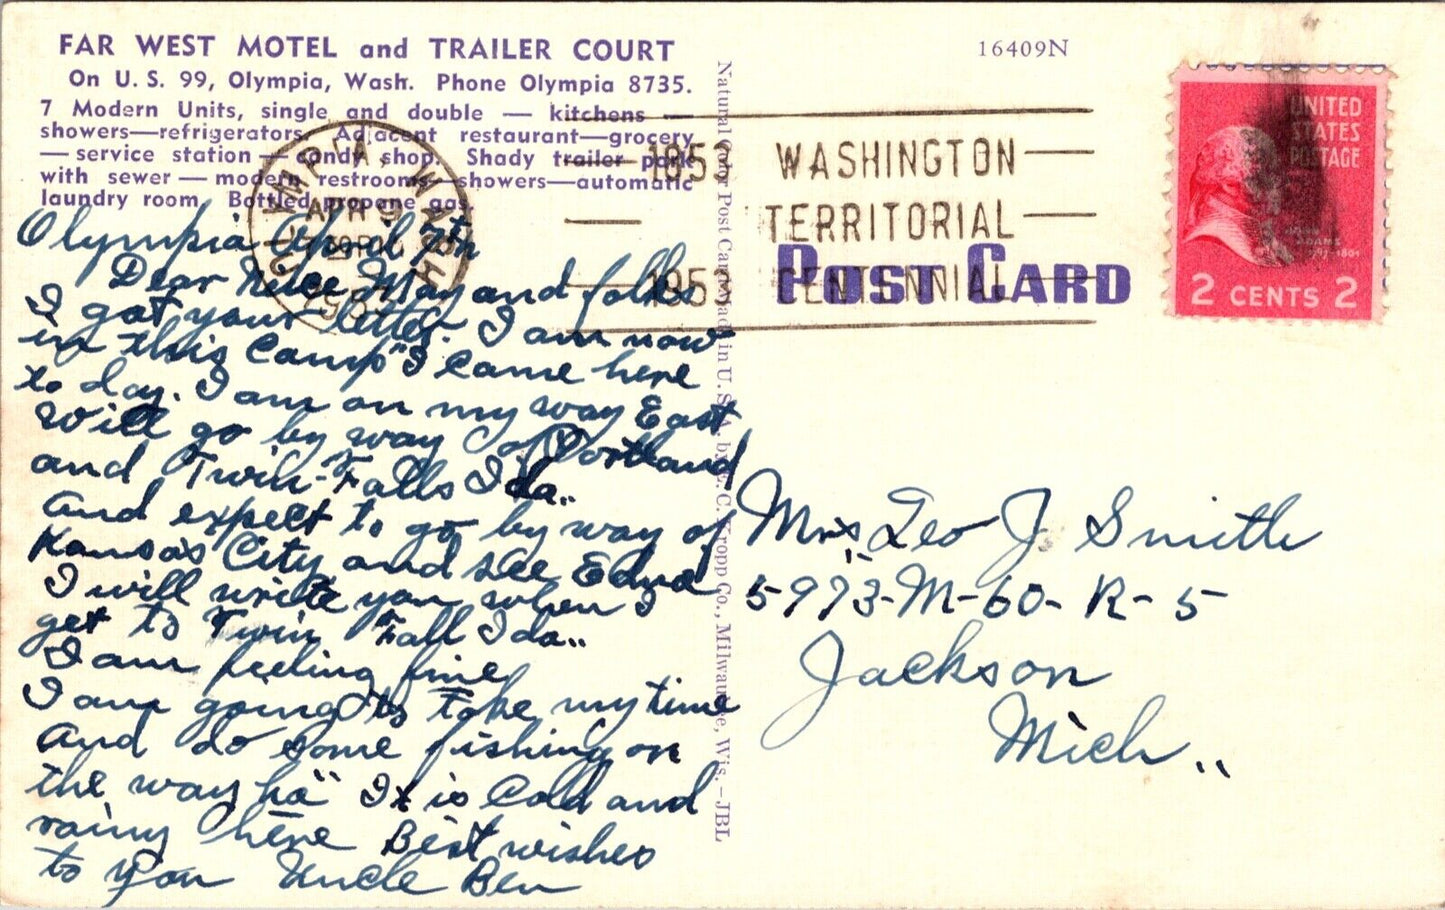 FAR WEST MOTEL and TRAILER COURT
On U. S. 99, Olympia, Wash. Phone Olympia 8735.
7 Modern Units, single and double — kitchens —
showers—refrigerators. Adjacent restaurant—grocery
— service station — candy shop. Shady trailer park
with sewer — modern restrooms—showers—automatic
laundry room. Bottled propane gas.
16409N
OLYMPIA WASH
APR 9
1953
1853 WASHINGTON
TERRITORIAL
1953 CENTENNIAL
POST CARD
UNITED
STATES
POSTAGE
JOHN
ADAMS
2 CENTS 2
Natural Color Post Card Made in U. S. A. by E. C. Kropp Co., Milwaukee, Wis. – JBL
Olympia April 7th
Dear May and folks
I got your letter. I am now
in this Camp" I came here
to day. I am on my way East
will go by way of Portland
and Twin-Falls Ida..
And expect to go by way of
Kansas City and see Edna
I will write you when I
get to Twin Fall Ida..
I am feeling fine
I am going to take my time
And do some fishing on
the way ha" It is Cold and
rainy here Best wishes
to you Uncle Ben
Mrs Leo J. Smith
5973-M-60-R-5
Jackson
Mich..